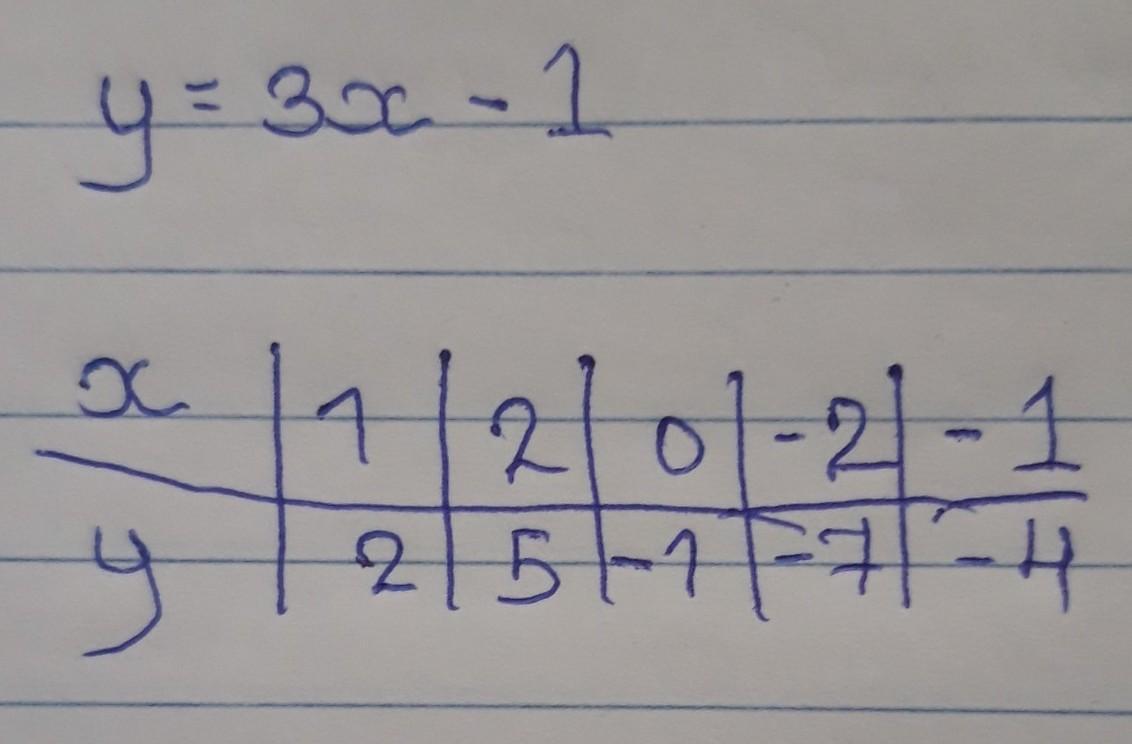 y = 3x - 1
x | 1 | 2 | 0 | -2 | -1
y | 2 | 5 | -1 | -7 | -4